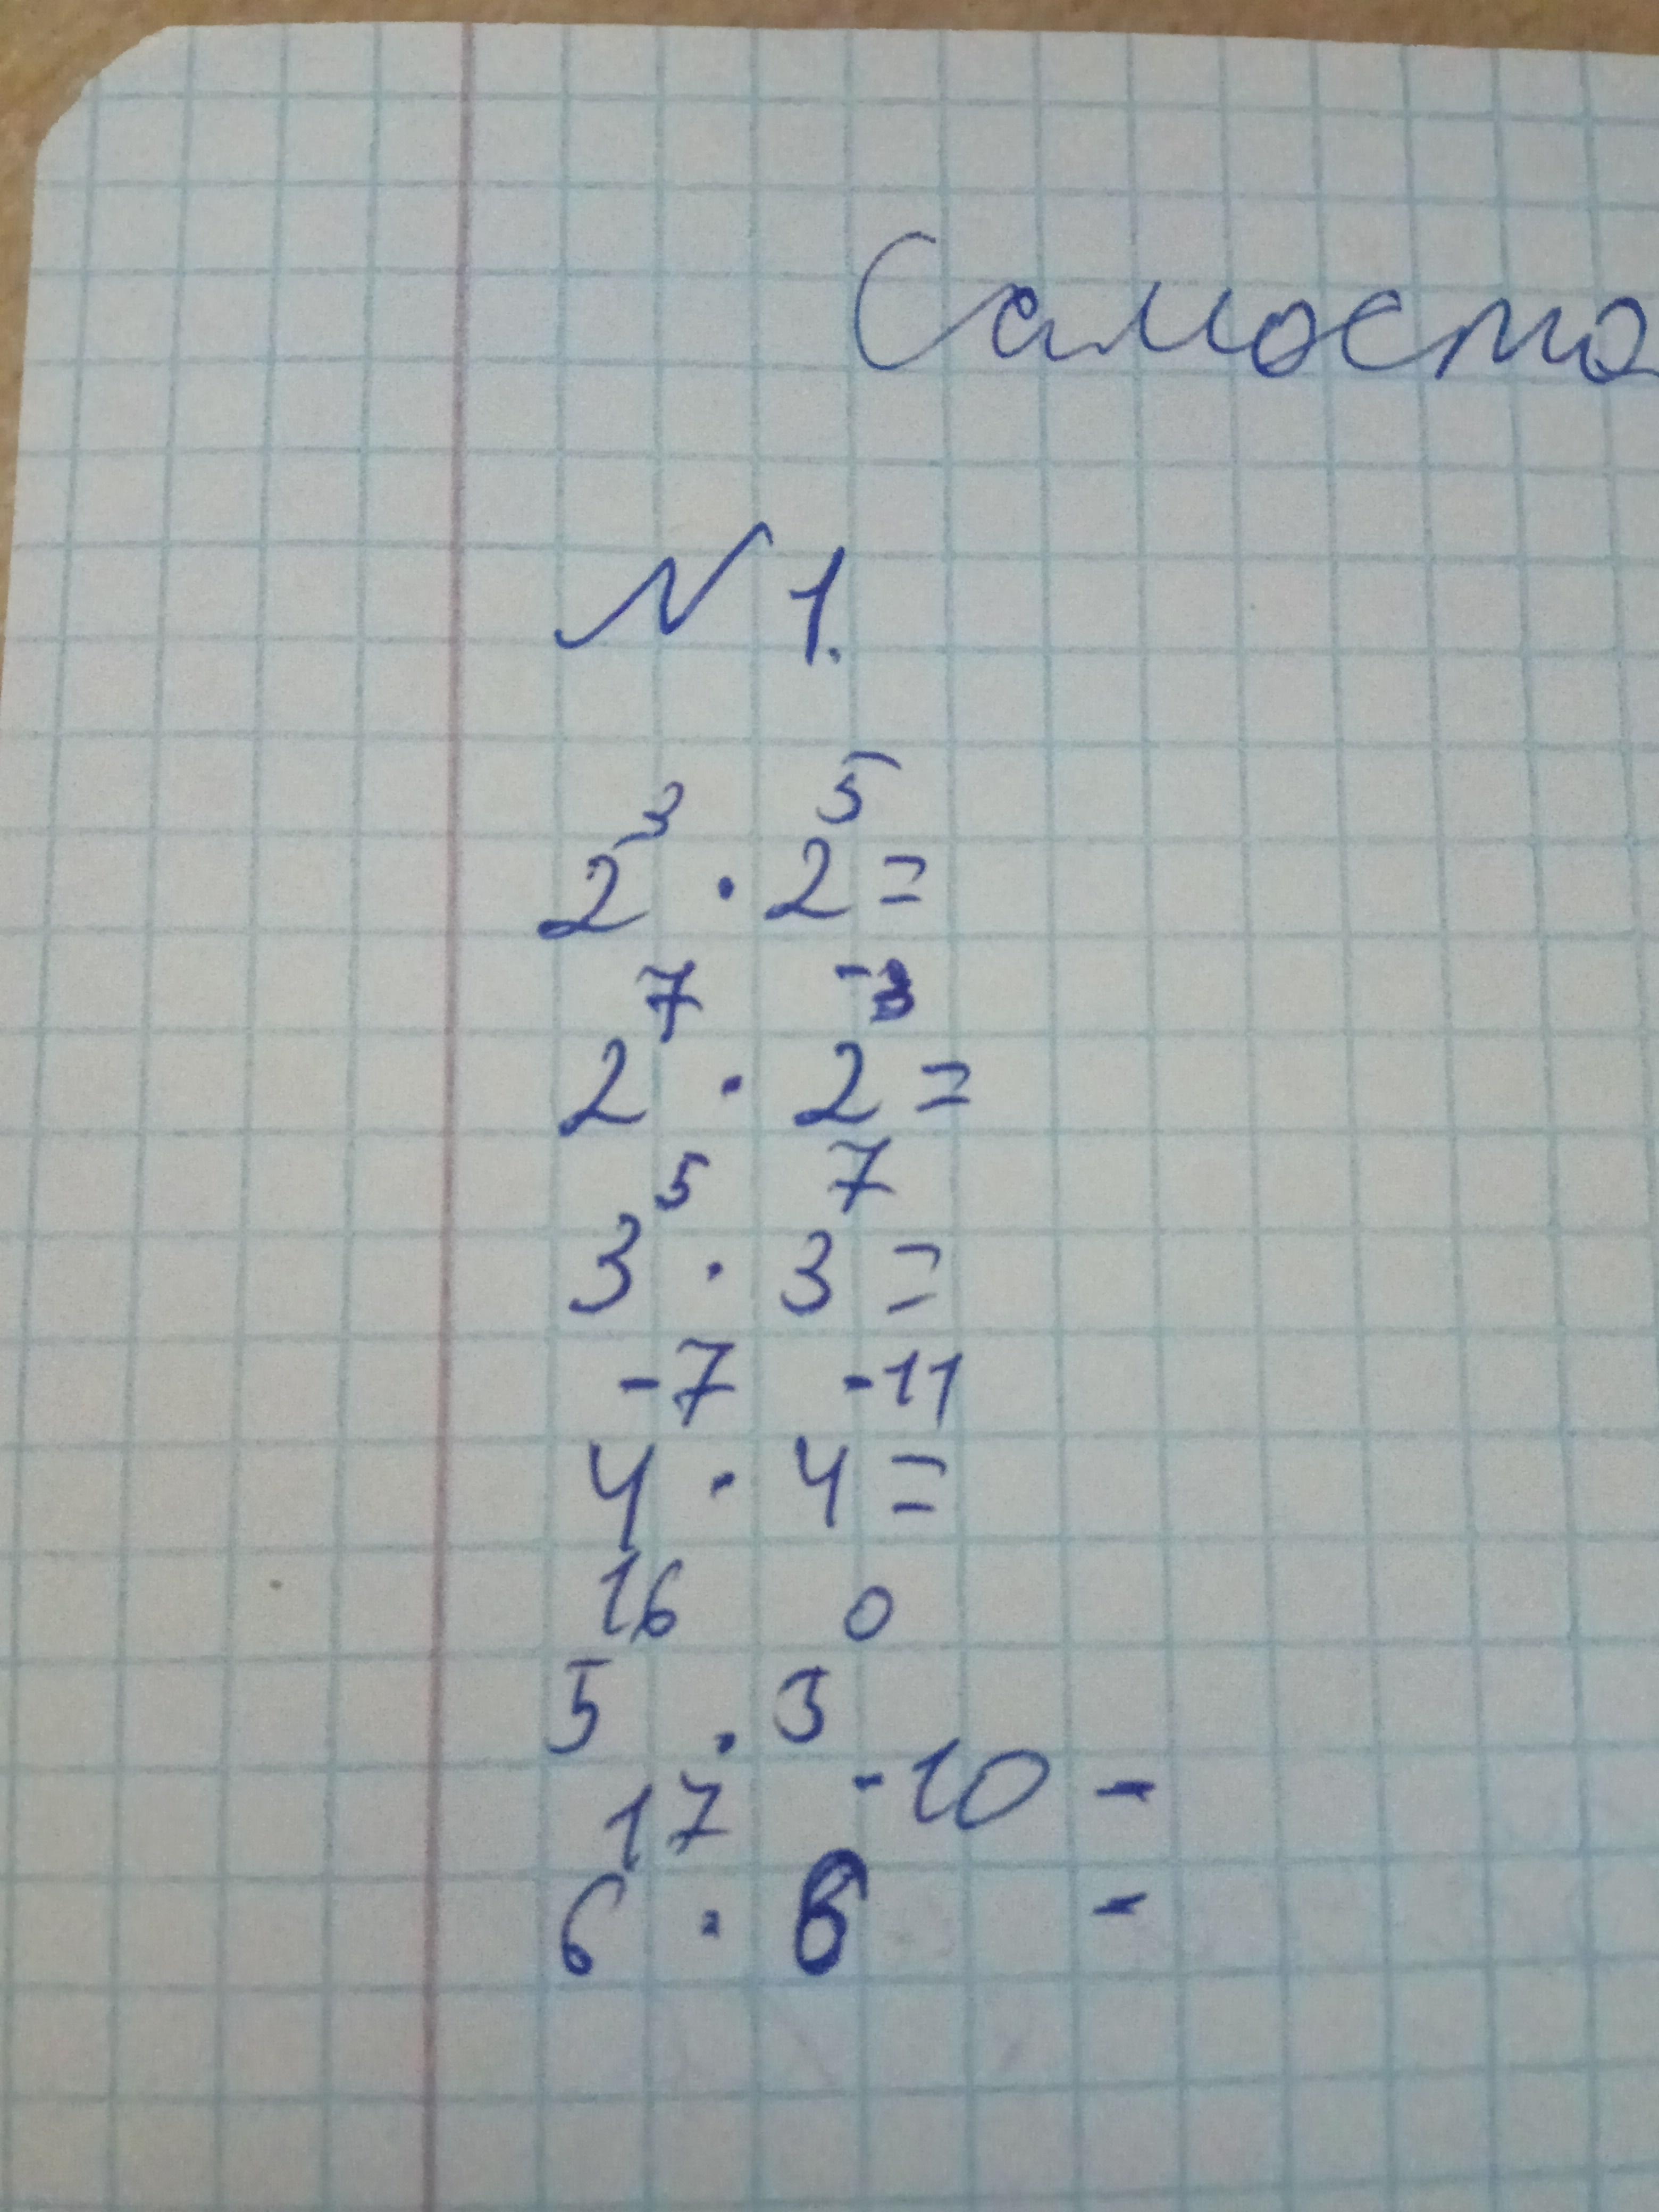 Самосто
№ 1.
2³ · 2⁵ =
2⁷ · 2⁻³ =
3⁵ · 3⁷ =
4⁻⁷ · 4⁻¹¹ =
5¹⁶ · 5⁰
6¹⁷ · 6⁻¹⁰ =